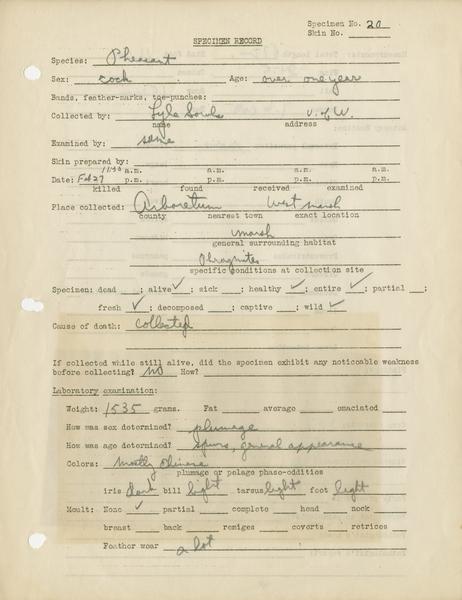 Specimen No. 20
Skin No.
SPECIMEN RECORD
Species: Pheasant
Sex: cock Age: over one year
Bands, feather-marks, toe-punches:
Collected by: Lyle Sowls U. of W.
name address
Examined by: same
Skin prepared by:
11:30 a.m. a.m. a.m. a.m.
Date: Feb 27 p.m. p.m. p.m. p.m.
killed found received examined
Place collected: Arboretum West marsh
county nearest town exact location
marsh
general surrounding habitat
Phragmites
specific conditions at collection site
Specimen: dead ; alive ✓; sick ; healthy ✓; entire ✓; partial ;
fresh ✓; decomposed ; captive ; wild ✓
Cause of death: collected
If collected while still alive, did the specimen exhibit any noticeable weakness
before collecting? No How?
Laboratory examination:
Weight: 1535 grams. Fat average emaciated
How was sex determined? plumage
How was age determined? spurs, general appearance
Colors: mostly Chinese
plumage or pelage phase-oddities
iris dark bill light tarsus light foot light
Moult: None ✓ partial complete head neck
breast back remiges coverts retrices
Feather wear a lot